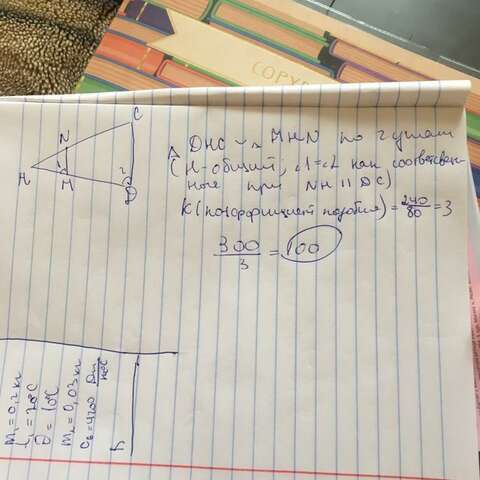 COPYB
C
N
H
1
M
2
D
Δ DHC ~ Δ MHN по 2 углам
(H-общий; ∠1=∠2 как соответствен-
ные при NM || DC)
K(коэффициент подобия) = 240/80 = 3
300/3 = 100
m₁=0,2 кг
t₁=20°C
m₂=0,03 кг